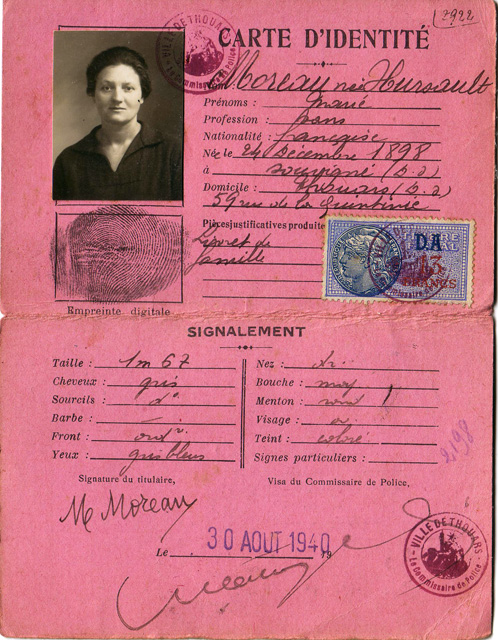 2922
VILLE DE THOUARS
Le Commissaire de Police
CARTE D'IDENTITÉ
Nom Moreau née Hersault
Prénoms : Marie
Profession : sans
Nationalité : française
Née le 24 Décembre 1898
à Souvigné (D.S)
Domicile : Thouars (D.S)
59 rue de la Quintinie
Pièces justificatives produites
Livret de
famille
DA
13
FRANCS
Empreinte digitale
SIGNALEMENT
Taille : 1m 67
Cheveux : gris
Sourcils : do
Barbe :
Front : ordre
Yeux : gris bleus
Nez : dr
Bouche : moy
Menton : rond
Visage : ov
Teint : coloré
Signes particuliers :
2198
Signature du titulaire,
Visa du Commissaire de Police,
M Moreau
Le 30 AOUT 1940 19
VILLE DE THOUARS
Le Commissaire de Police